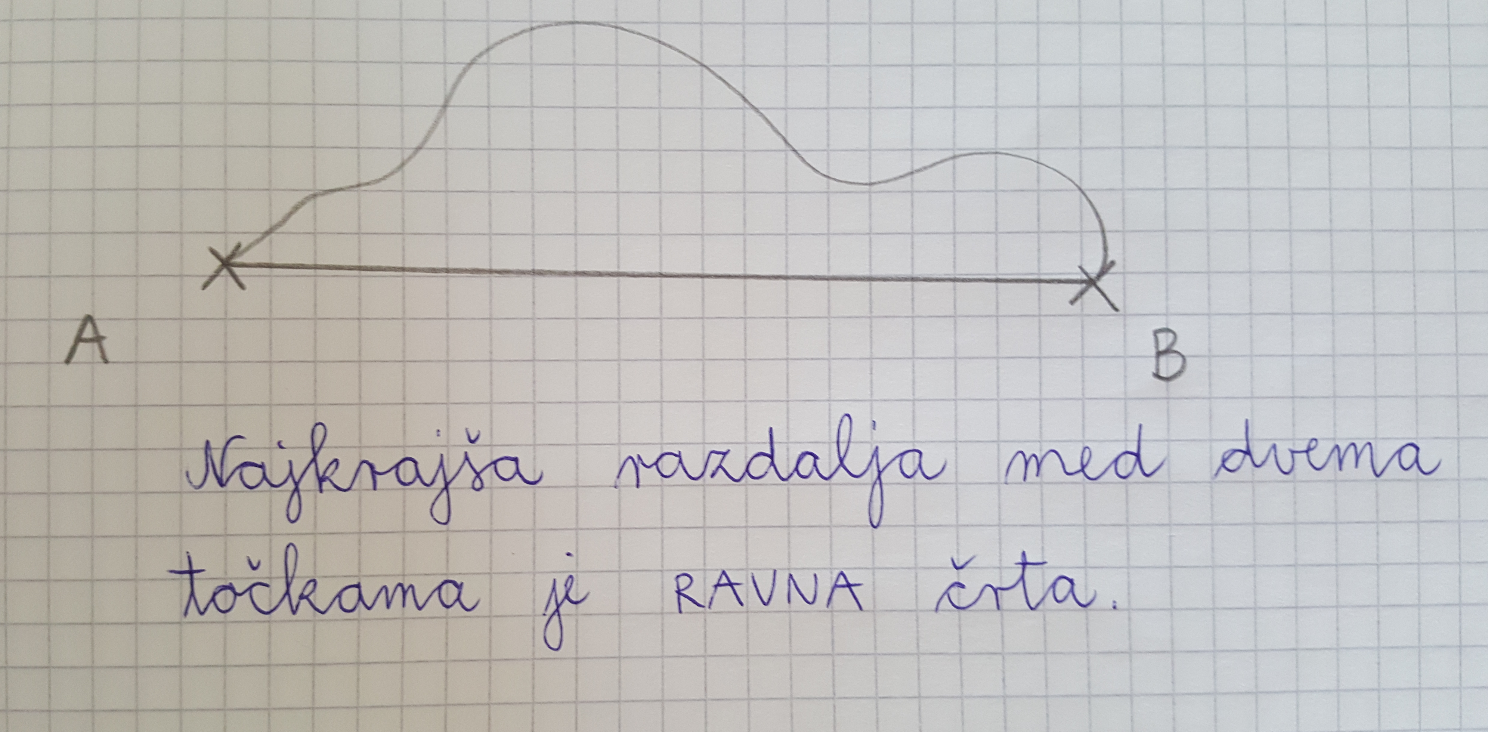 A
B
Najkrajša razdalja med dvema
točkama je RAVNA črta.